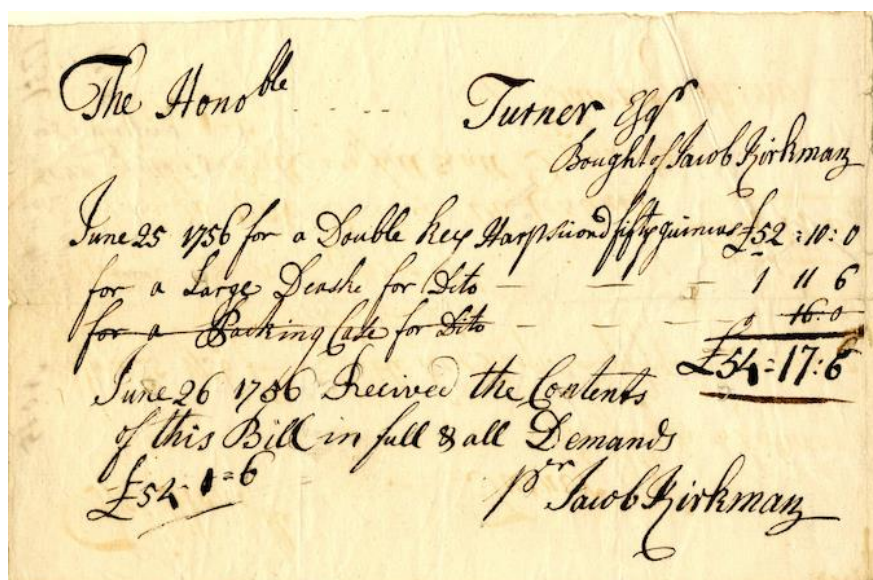 The Honoble - - Turner Esqr
Bought of Jacob Kirkman
June 25 1756 for a Double key Harpsicord fifty guineas £52 : 10 : 0
for a Large Deaske for Dito - - - 1 11 6
for a Packing Case for Dito - - - 0 16 : 0
£54 = 17 : 6
June 26 1756 Recived the Contents
of this Bill in full & all Demands
£54 - 1 = 6
pr Jacob Kirkman